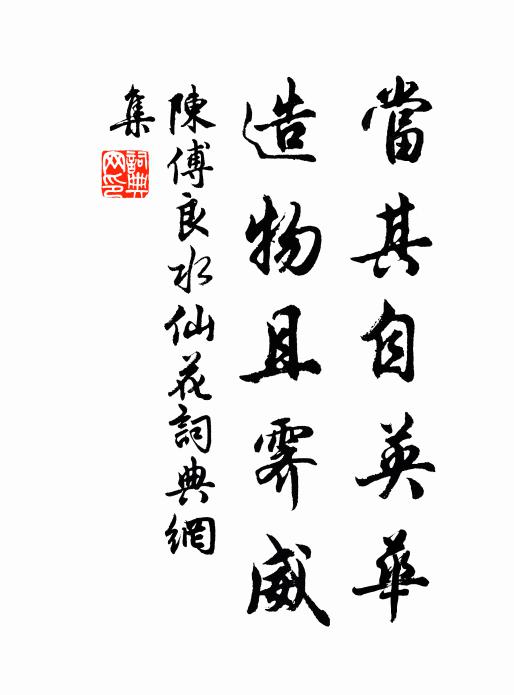 當其自英華
造物且霽威
陳傅良水仙花詞典網
集
詞典網印